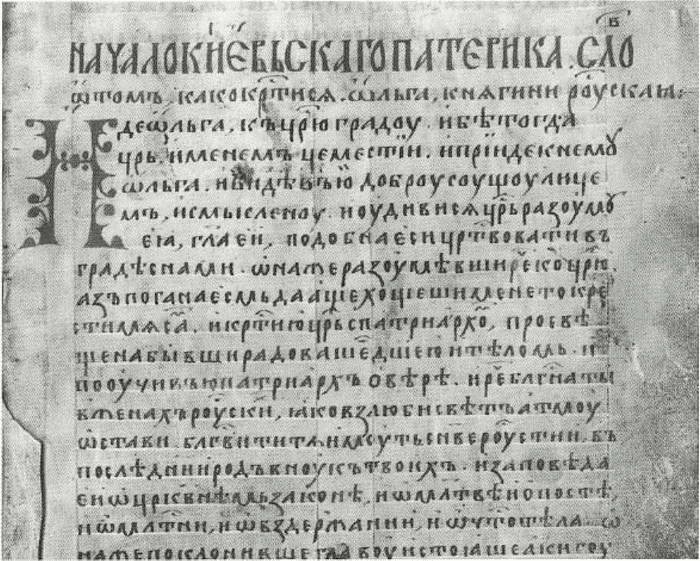 НАЧАЛО КИЕВЬСКАГО ПАТЕРИКА. СЛОв
ѿ томъ, како кр҃тися. ѡльга, княгини роускаꙗ:
Иде ѡльга, къ цр҃ю градоу. и бѣ тогда
цр҃ь именемъ цеместїи. и прїиде к немоу
ѡльга. и видѣвъ ю доброу соущоу лице
мъ, и смысленоу. и оудивися цр҃ь разоумоу
еꙗ, гл҃а еи, подобна еси цр҃твовати въ
градѣ с нами. ѡна же разоумѣвши реⷱ҇ ко цр҃ю,
азъ погана есмь да аще хощеши мене то кре
сти мя саⷨ҇. и кр҃ти ю цр҃ь с патриархоⷨ҇, просвѣ
щена бывши радоваше дшею и тѣломь. и
пооучивъ ю патриархъ о вѣрѣ. и реⷱ҇ блг҃на ты
в женахъ роускиⷯ, ꙗко възлюби свѣтъ а тмоу
ѡстави. блг҃вити тя имоуть сн҃ве роустии. въ
послѣднии родъ вноукъ твоихъ. и заповѣда
еи ѡ цр҃квнѣмь законѣ, и ѡ млт҃вѣ и о постѣ,
и ѡ млт҃ни, и ѡ въздержании, и ѡ чт҃отѣ тѣла. ѡ
на же поклонивше главоу и стоꙗше аки гоу